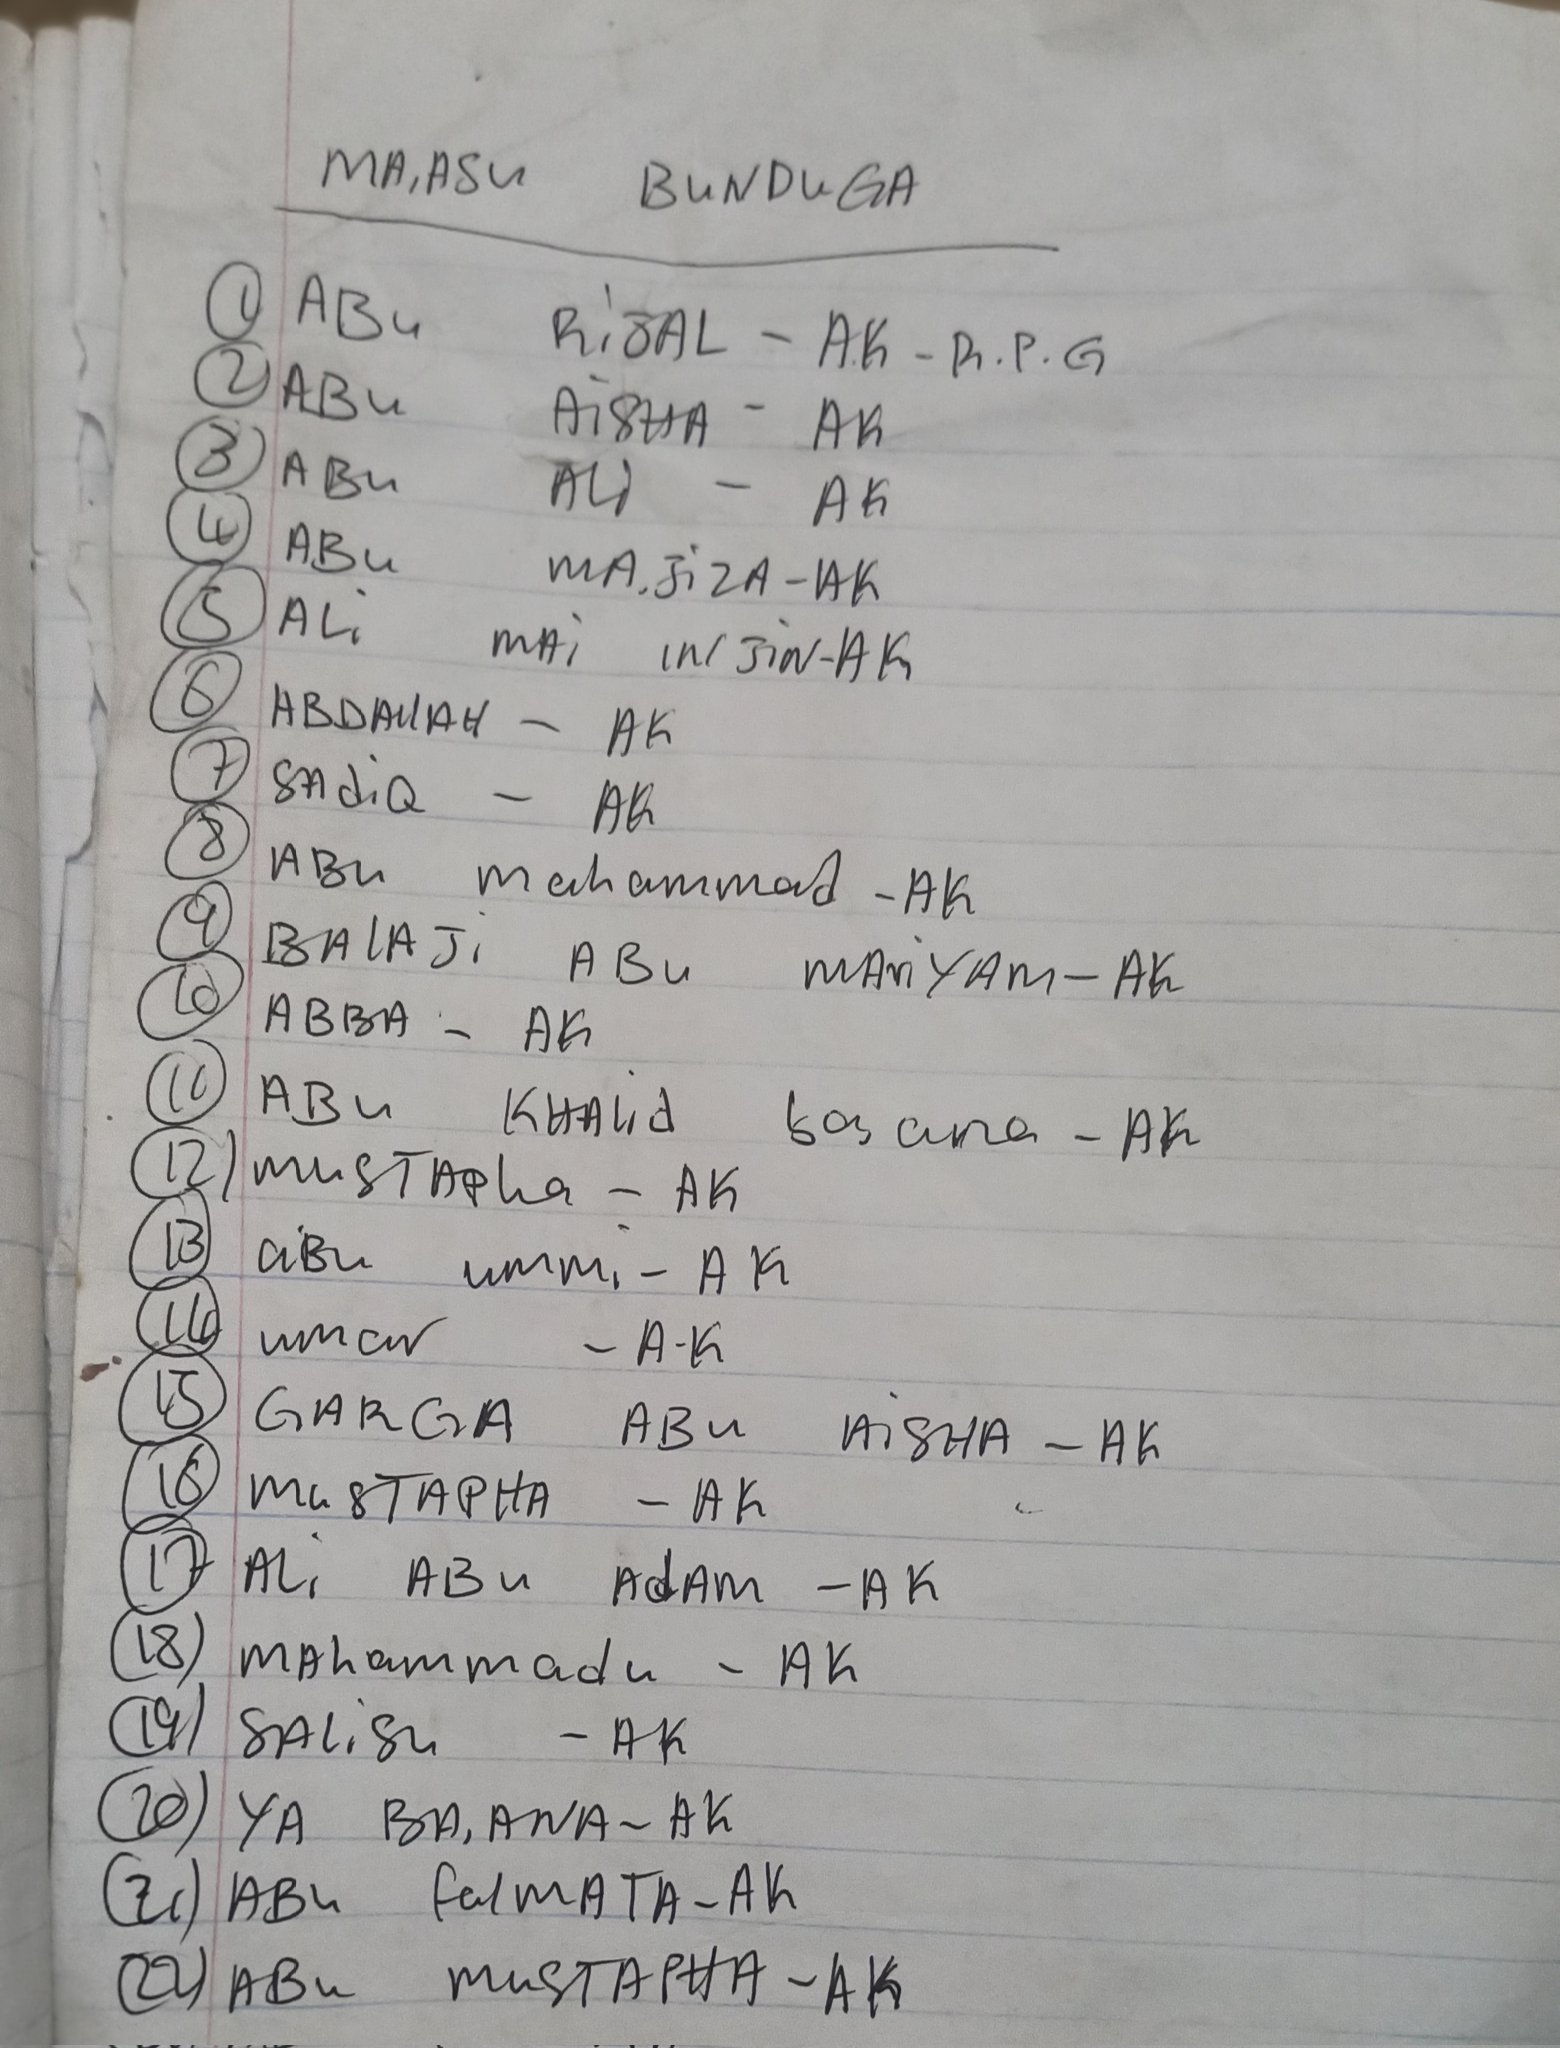 MA,ASU BUNDUGA
1 ABu RiJAL - AK - R.P.G
2 ABu AiSHA - AK
3 ABu ALi - AK
4 ABu MA,JiZA - AK
5 ALi MAi INJIN - AK
6 ABDAllAH - AK
7 SAdiQ - AK
8 ABu Mahammad - AK
9 BAlAJi ABu MARiYAM - AK
10 ABBA - AK
11 ABu KHAlid - AK
12) MuSTAPha - AK
13 aBu ummi - AK
14 umar - A-K
15 GARGA ABu AiSHA - AK
16 MuSTAPHA - AK
17 ALi ABu AdAM - AK
18) MAhammadu - AK
19) SALiSu - AK
20) YA BA,ANA - AK
21) ABu falMATA - AK
22) ABu MuSTAPHA - AK